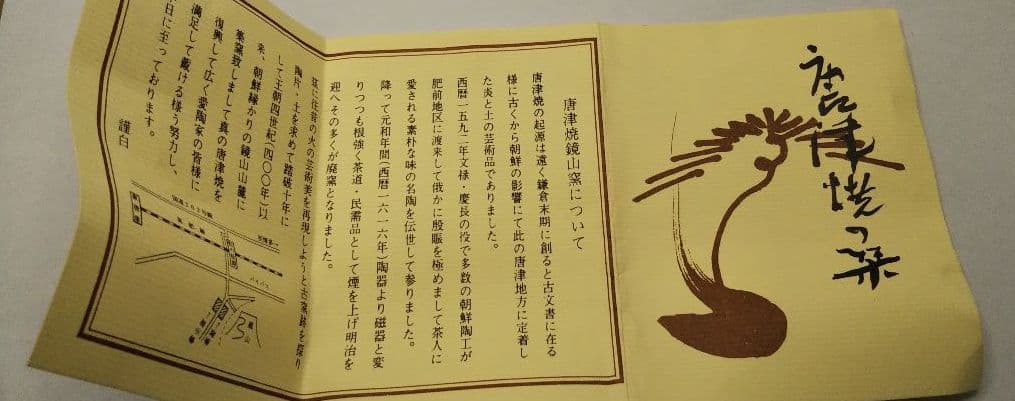 唐津焼の栞
唐津焼鏡山窯について
唐津焼の起源は遠く鎌倉末期に創ると古文書に在る
様に古くから朝鮮の影響にて此の唐津地方に定着し
た炎と土の芸術品でありました。
西暦一五九二年文禄・慶長の役で多数の朝鮮陶工が
肥前地区に渡来して俄かに殷賑を極めまして茶人に
愛される素朴な味の名陶を伝世して参りました。
降って元和年間(西暦一六一六年)陶器より磁器と変
りつつも根強く茶道・民需品として煙を上げ明治を
迎へその多くが廃窯となりました。
茲に往昔の火の芸術美を再現しようと古窯跡を探り
陶片・土を求めて踏破十年に
して王朝四世紀(四〇〇年)以
来、朝鮮縁かりの鏡山山麓に
築窯致しまして真の唐津焼を
復興して広く愛陶家の皆様に
満足して戴ける様う努力し、
本日に至っております。
謹白
国道202号線
バイパス
鏡山